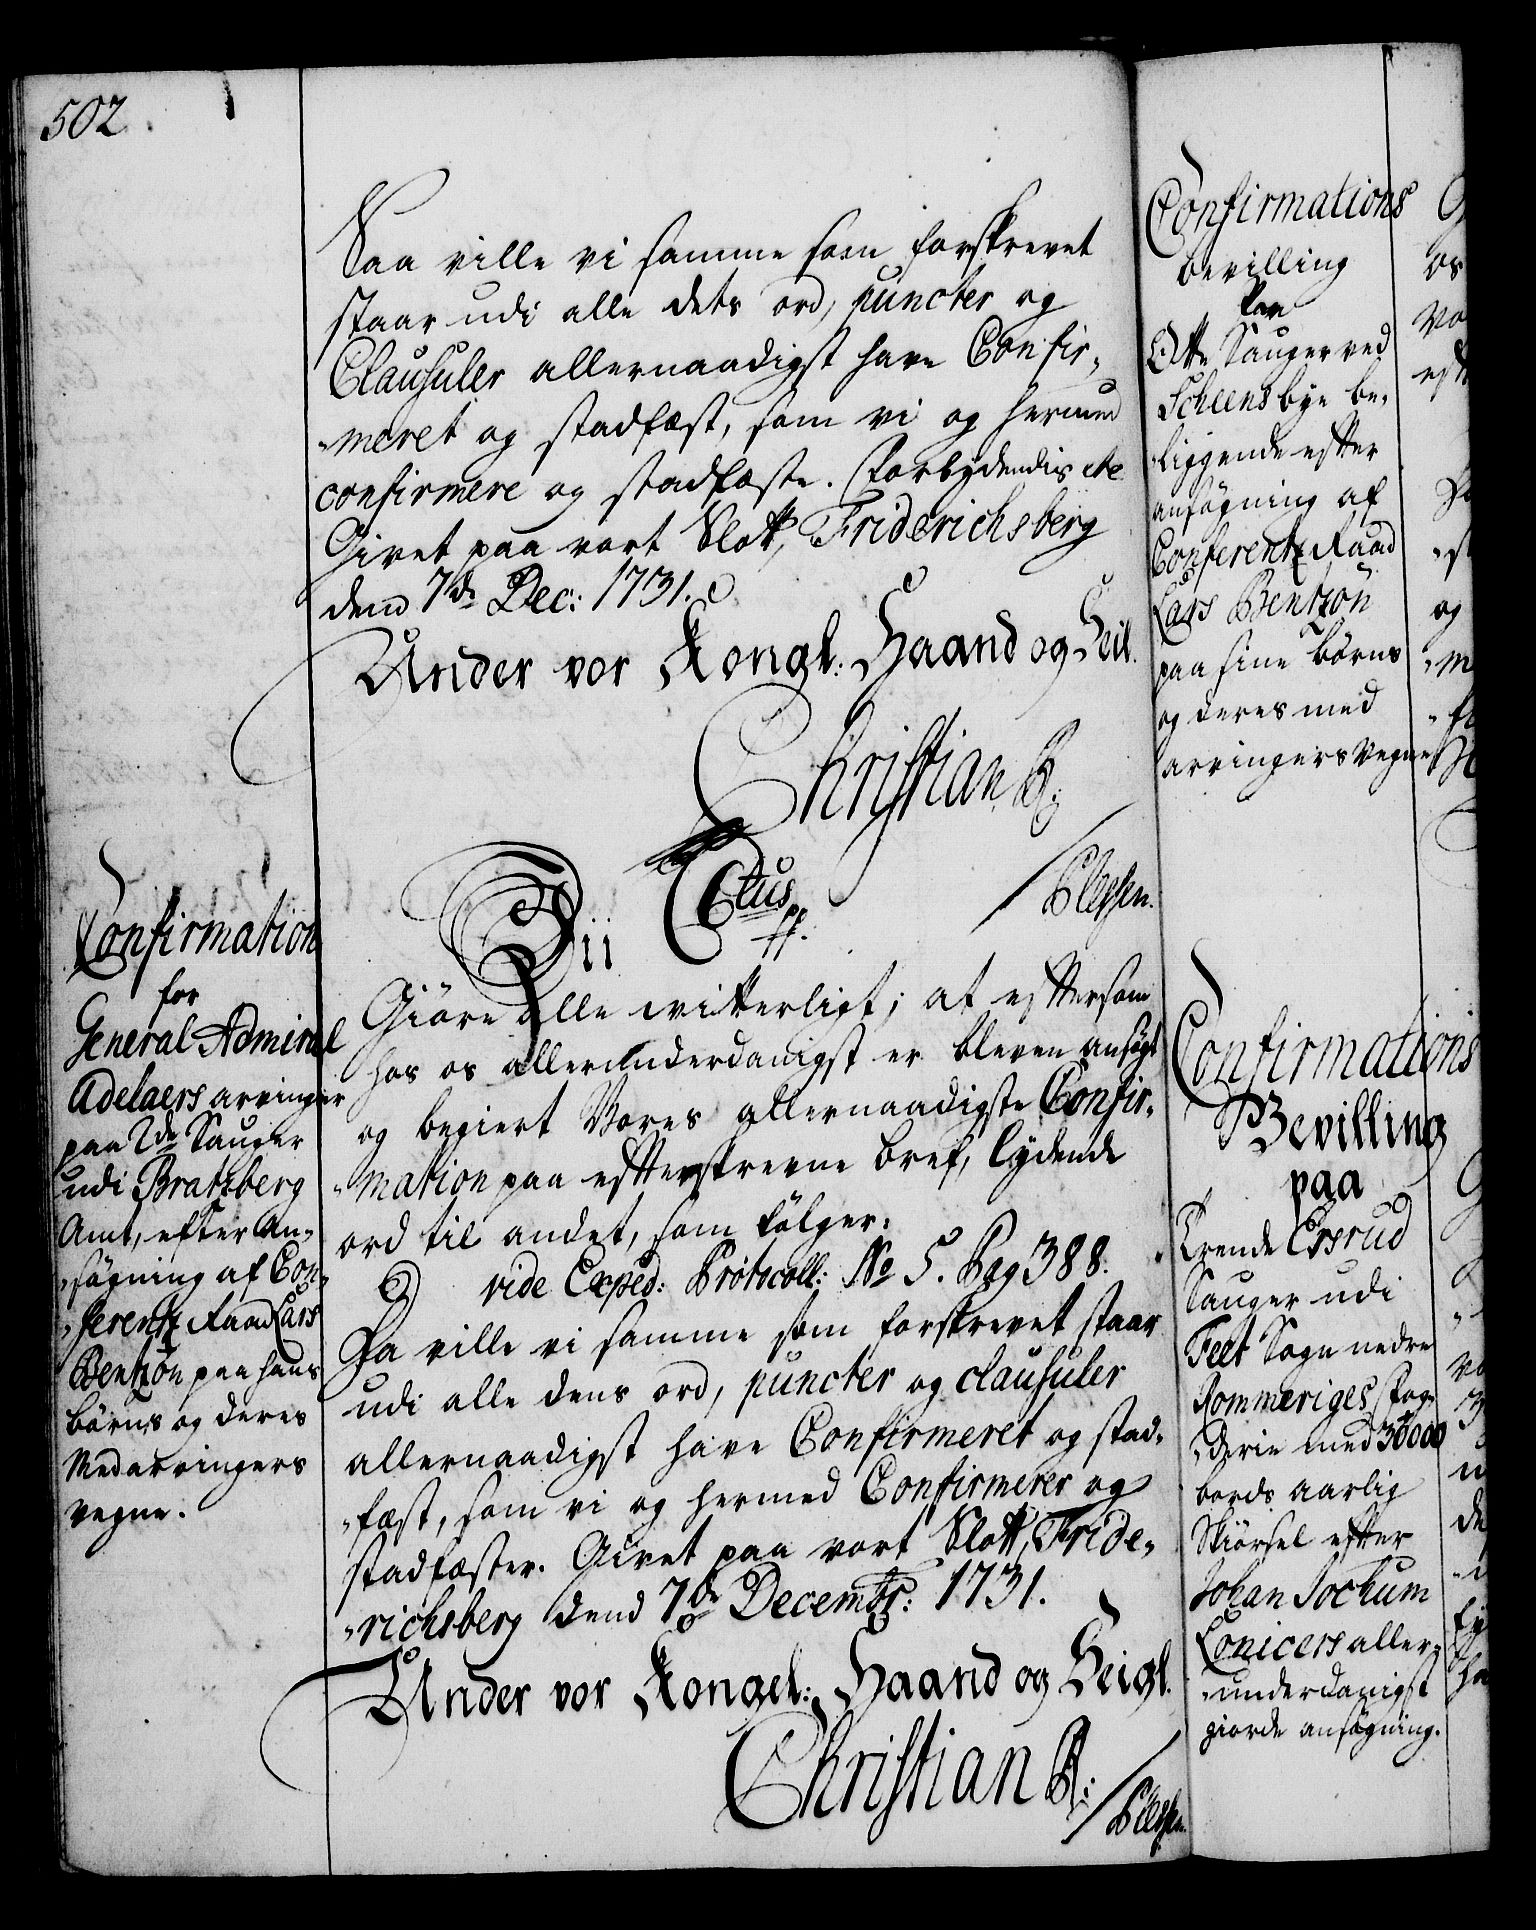 502.
Saa ville vi samme som forskrevet
staar udi alle dets ord, puncter og
Clausuler allernaadigst have Confir„
„meret og stadfæst, som vi og hermed
confirmere og stadfæste. Forbydendis etc
Givet paa vort Slott, Friderichsberg
dend 7de Dec: 1731.
Under vor Kongl: Haand og Seil.
Christian R:
/ Plessen.
Confirmation
for
General Admiral
Adelaers arvinger
paa 2de Sauger
udi Bratzberg
Amt, efter an„
„søgning af Con„
„ferentz Raad Lars
Bentzon paa hans
børns og deres
Medarvingers
vegne.
Dii Ctus pp.
Giöre Alle witterligt; at eftersom
hos os allerunderdanigst er bleven ansögt
og begiert Vores allernaadigste Confir„
„mation paa efterskrevne bref, lydende
ord til andet, som fölger.
vide Exped: Protocoll: No 5. Pag 388.
Da ville vi samme som forskrevet staar
udi alle dens ord, puncter og clausuler
allernaadigst have Confirmeret og stad„
„fæst, som vi og hermed Confirmerer og
stadfæster. Givet paa vort Slott, Fride„
„richsberg dend 7de Decembr: 1731.
Under vor Kongel: Haand og Seigl.
Christian R:
/ Plessen.
Confirmations
bevilling
paa
Otte Sauger ved
Scheens bye be„
liggende efter
ansøgning af
Conferentz Raad
Lars Bentzon
paa sine børns
og deres med
arvingers Vegne
Confirmations
Bevilling
paa
Trende Essrud
Sauger udi
Feet Sogn nedre
Rommeriges Fog„
„derie med 30000
bords aarlig
Skiörsel efter
Johan Jochum
Lonicers aller„
„underdanigst
giorde ansøgning.